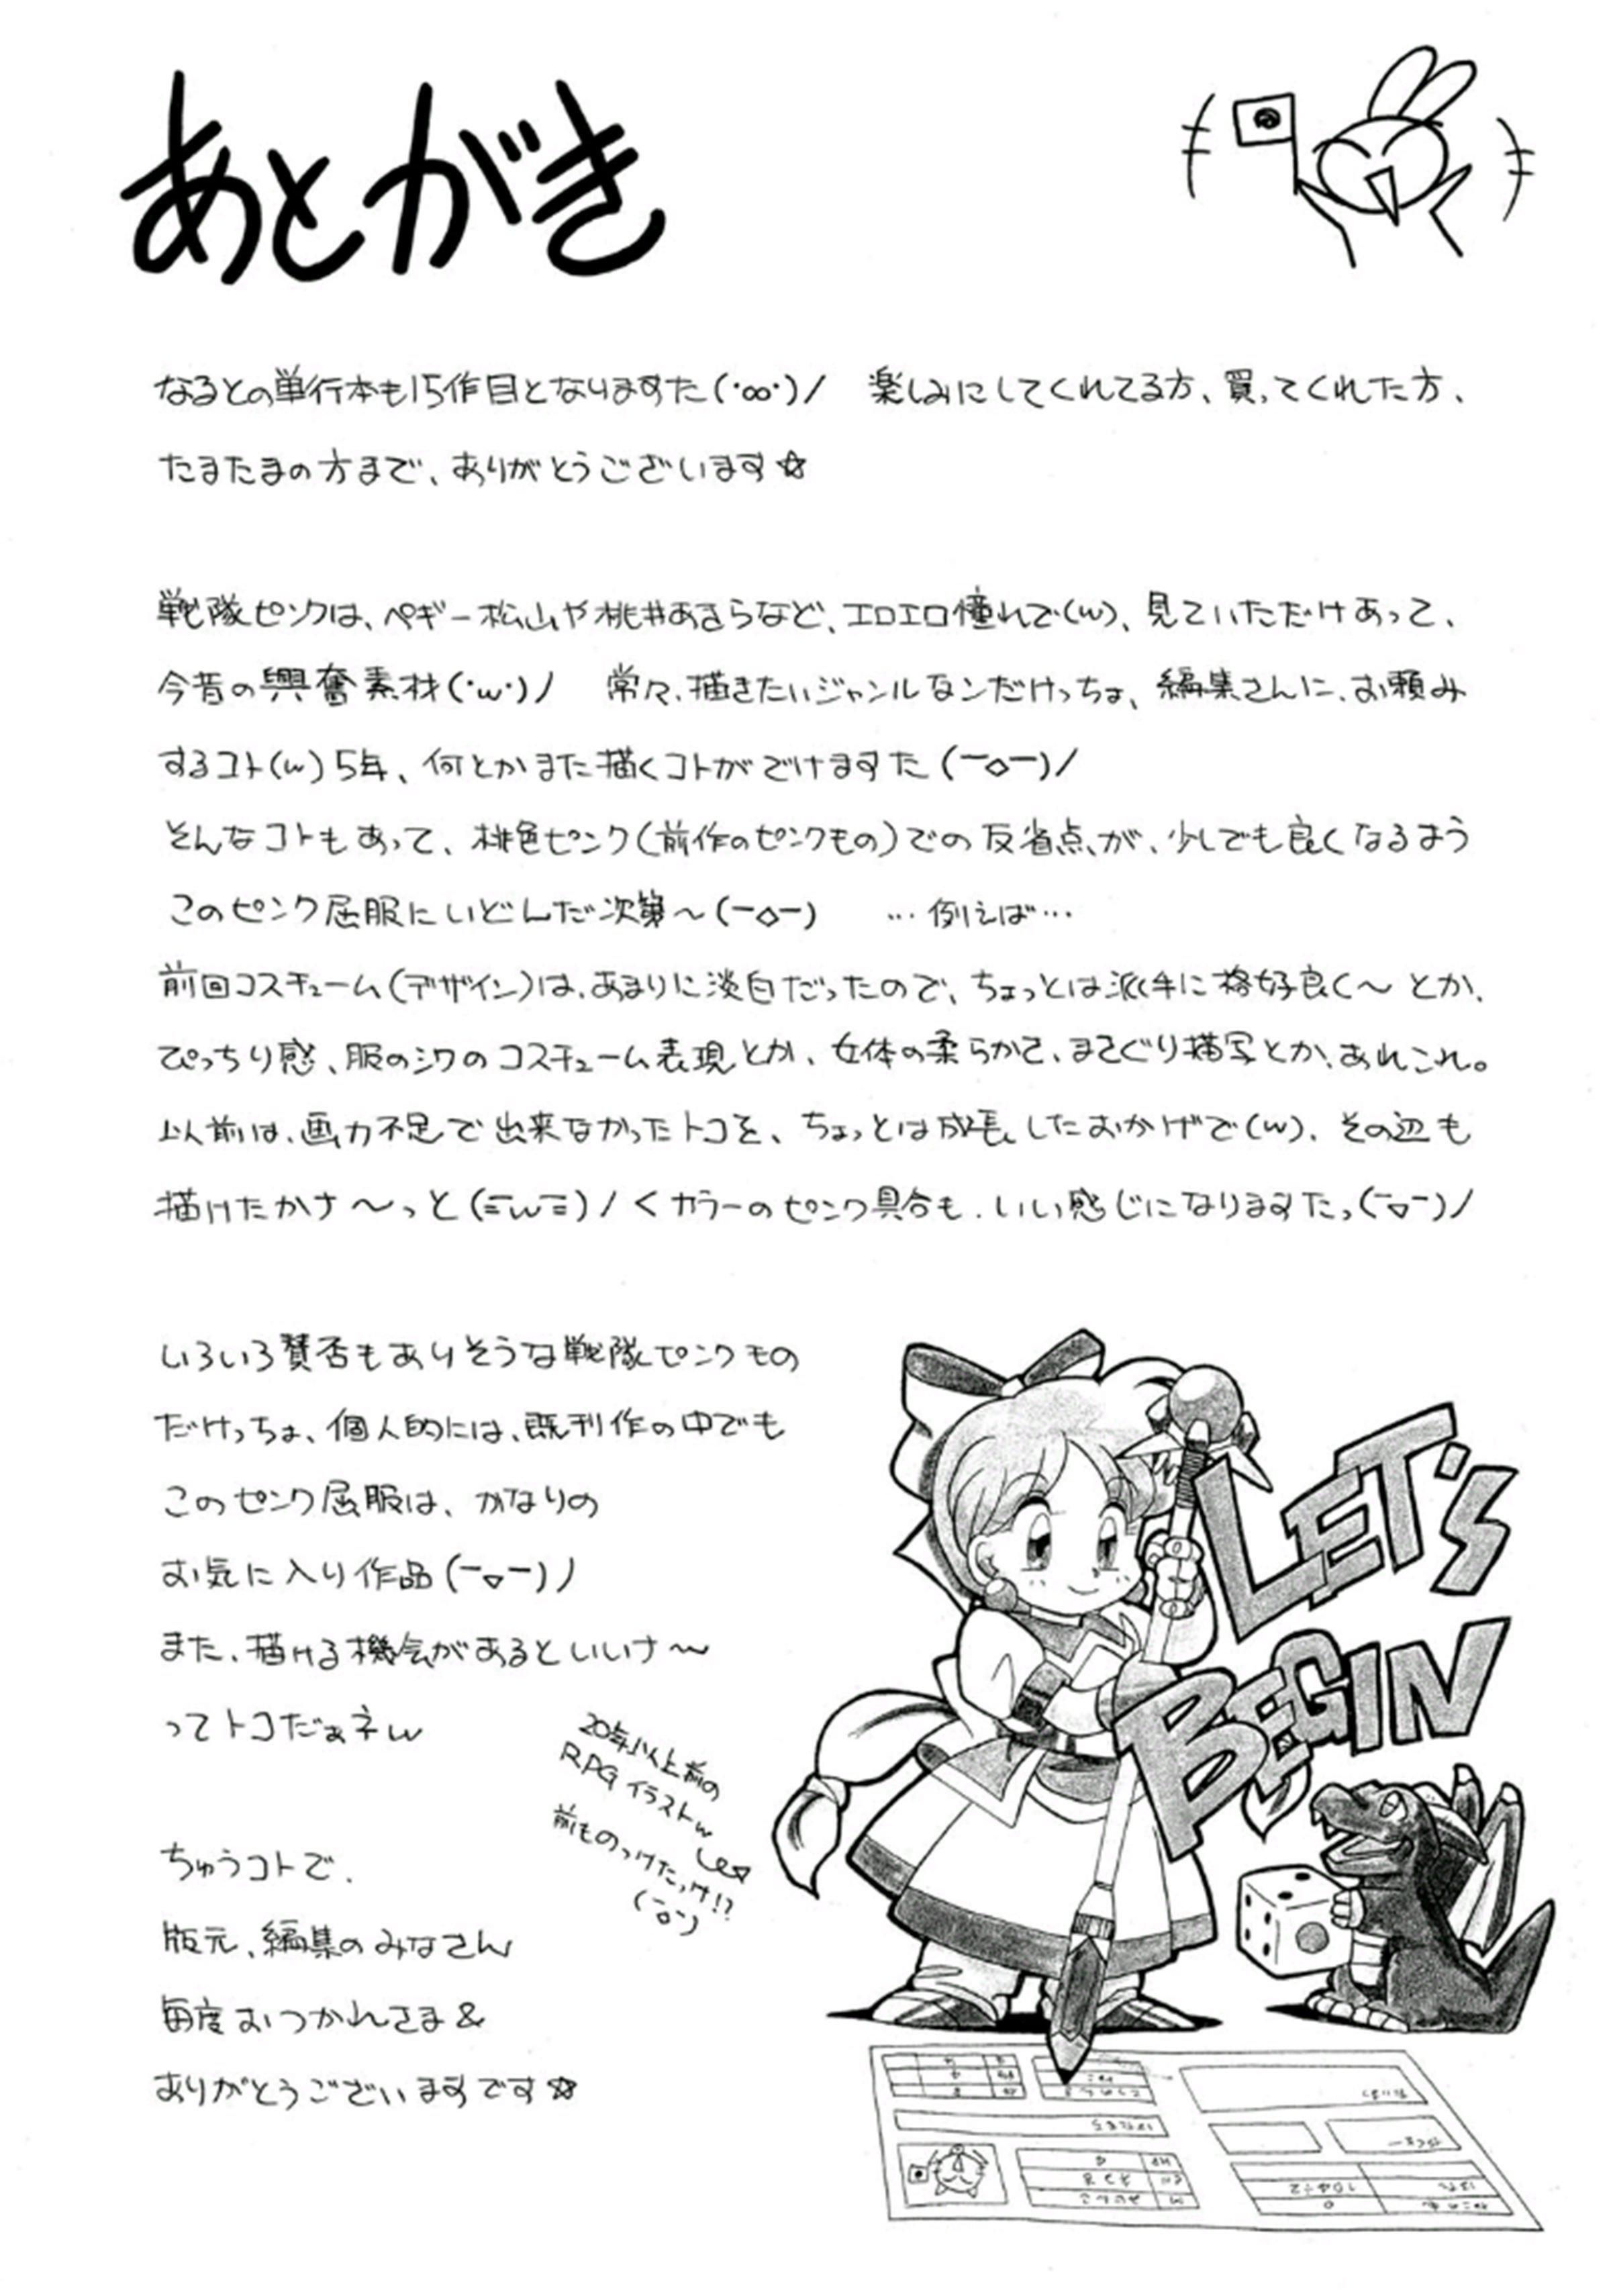 あとがき
なるとの単行本も15作目となりますた(・∞・)/ 楽しみにしてくれてる方、買ってくれた方、
たまたまの方まで、ありがとうございます☆
戦隊ピンクは、ペギー松山や桃井あきらなど、エロエロ憧れで(w)、見ていただけあって、
今昔の興奮素材(・w・)ノ 常々、描きたいジャンルなンだけっちょ、編集さんに、お頼み
するコト(w)5年、何とかまた描くコトがでけますた(ー◇ー)/
そんなコトもあって、桃色ピンク(前作のピンクもの)での反省点が、少しでも良くなるよう
このピンク屈服にいどんだ次第～(ー◇ー) …例えば…
前回コスチューム(デザイン)は、あまりに淡白だったので、ちょっとは派手に格好良く～とか、
ぴっちり感、服のシワのコスチューム表現とか、女体の柔らかさ、まさぐり描写とか、あれこれ。
以前は、画力不足で出来なかったトコを、ちょっとは成長したおかげで(w)、その辺も
描けたかナ～っと(≡w≡)/<カラーのピンク具合も、いい感じになりますたっ(ー▽ー)/
いろいろ賛否もありそうな戦隊ピンクもの
だけっちょ、個人的には、既刊作の中でも
このピンク屈服は、かなりの
お気に入り作品(ー▽ー)ノ
また、描ける機会があるといいナ～
ってトコだぁネw
20年以上前の
RPGイラストw
前ものっけたっけ!?
(ー□ー)
ちゅうコトで、
版元、編集のみなさん
毎度おつかれさま&
ありがとうございますです☆
LET'S
BEGIN